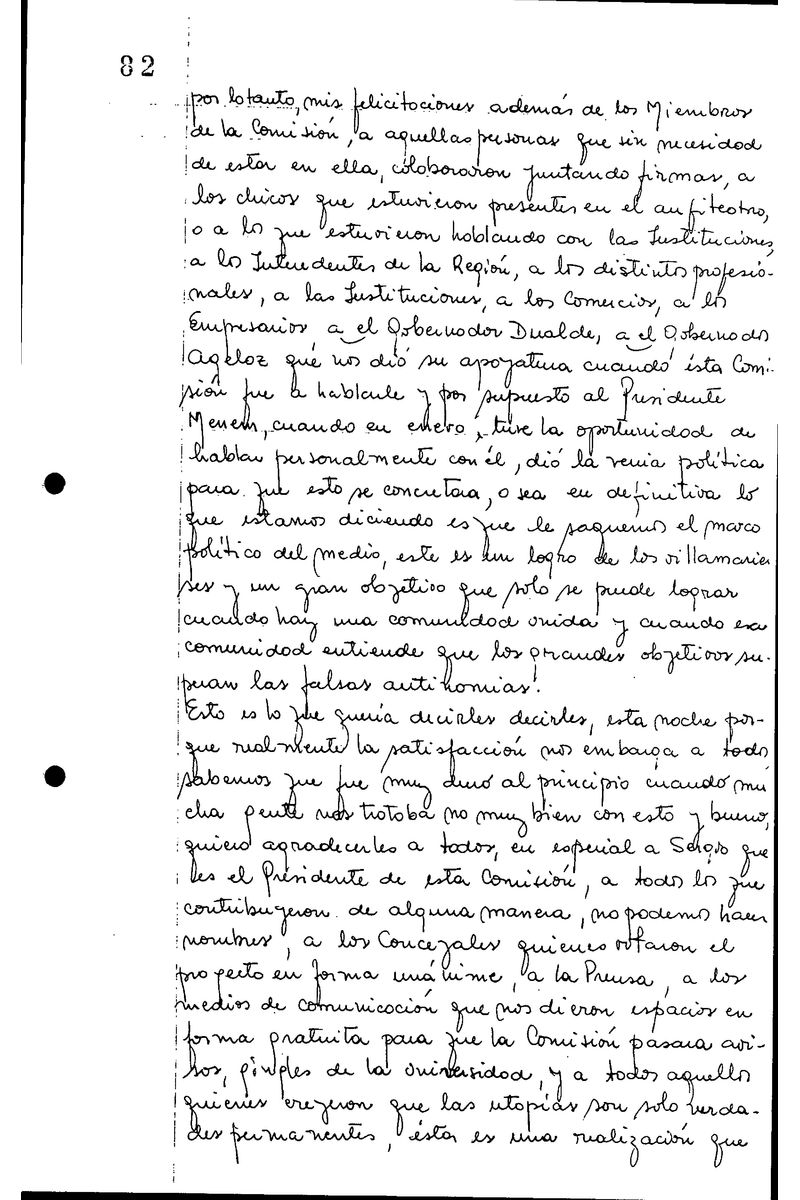 82
por lo tanto, mis felicitaciones además de los Miembros
de la Comisión, a aquellas personas que sin necesidad
de estar en ella, colaboraron juntando firmas, a
los chicos que estuvieron presentes en el anfiteatro,
o a lo que estuvieron hablando con las Instituciones,
a los Intendentes de la Región, a los distintos profesio-
nales, a las Instituciones, a los Comercios, a los
Empresarios a el Gobernador Dualde, a el Gobernador
Ageloz qué nos dió su apoyatura cuando ésta Comi-
sión fue a hablarle y por supuesto al Presidente
Menem, cuando en enero, tuve la oportunidad de
hablar personalmente con él, dió la venia política
para que esto se concretara, o sea en definitiva lo
que estamos diciendo es que le saquemos el marco
político del medio, este es un logro de los villamarien
ses y un gran objetivo que solo se puede lograr
cuando hay una comunidad unida y cuando esa
comunidad entiende que los grandes objetivos su-
peran las falsas antinomias.
Esto es lo que quería decirles decirles, esta noche por-
que realmente la satisfacción nos embarga a todos
sabemos que fue muy duro al principio cuando mu
cha gente nos trataba no muy bien con esto y bueno,
quiero agradecerles a todos, en especial a Sergio que
es el Presidente de esta Comisión, a todos los que
contribuyeron de alguna manera, no podemos hacer
nombres, a los Concejales quienes votaron el
proyecto en forma unánime, a la Prensa, a los
medios de comunicación que nos dieron espacios en
forma gratuita para que la Comisión pasara avi-
sos, gingles de la Universidad, y a todos aquellos
quienes creyeron que las utopías son solo verda-
des permanentes, ésta es una realización que